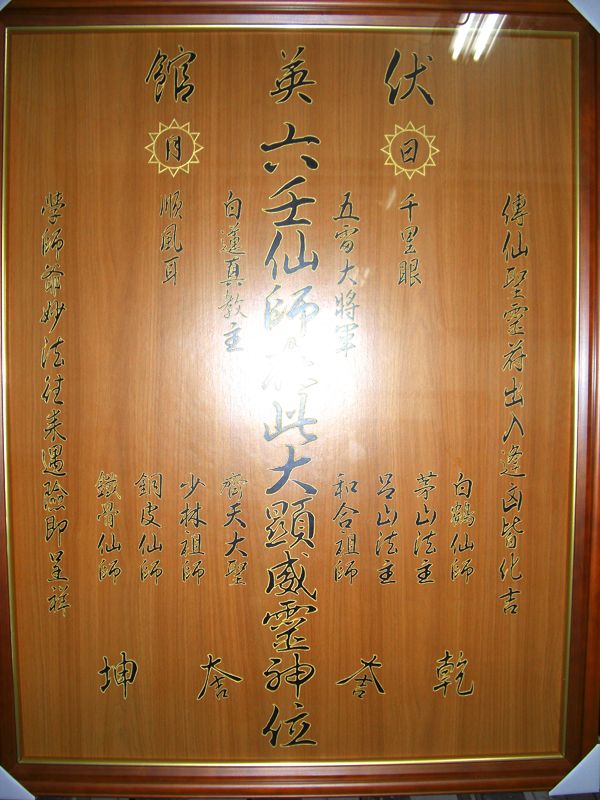 伏英館
日
月
傳仙聖靈符出入逢凶皆化吉
千里眼
五雷大將軍
六壬仙師在此大顯威靈神位
白蓮真教主
順風耳
學師爺妙法往來遇險即呈祥
白鶴仙師
茅山法主
呂山法主
和合祖師
齊天大聖
少林祖師
銅皮仙師
鐵骨仙師
乾
坤